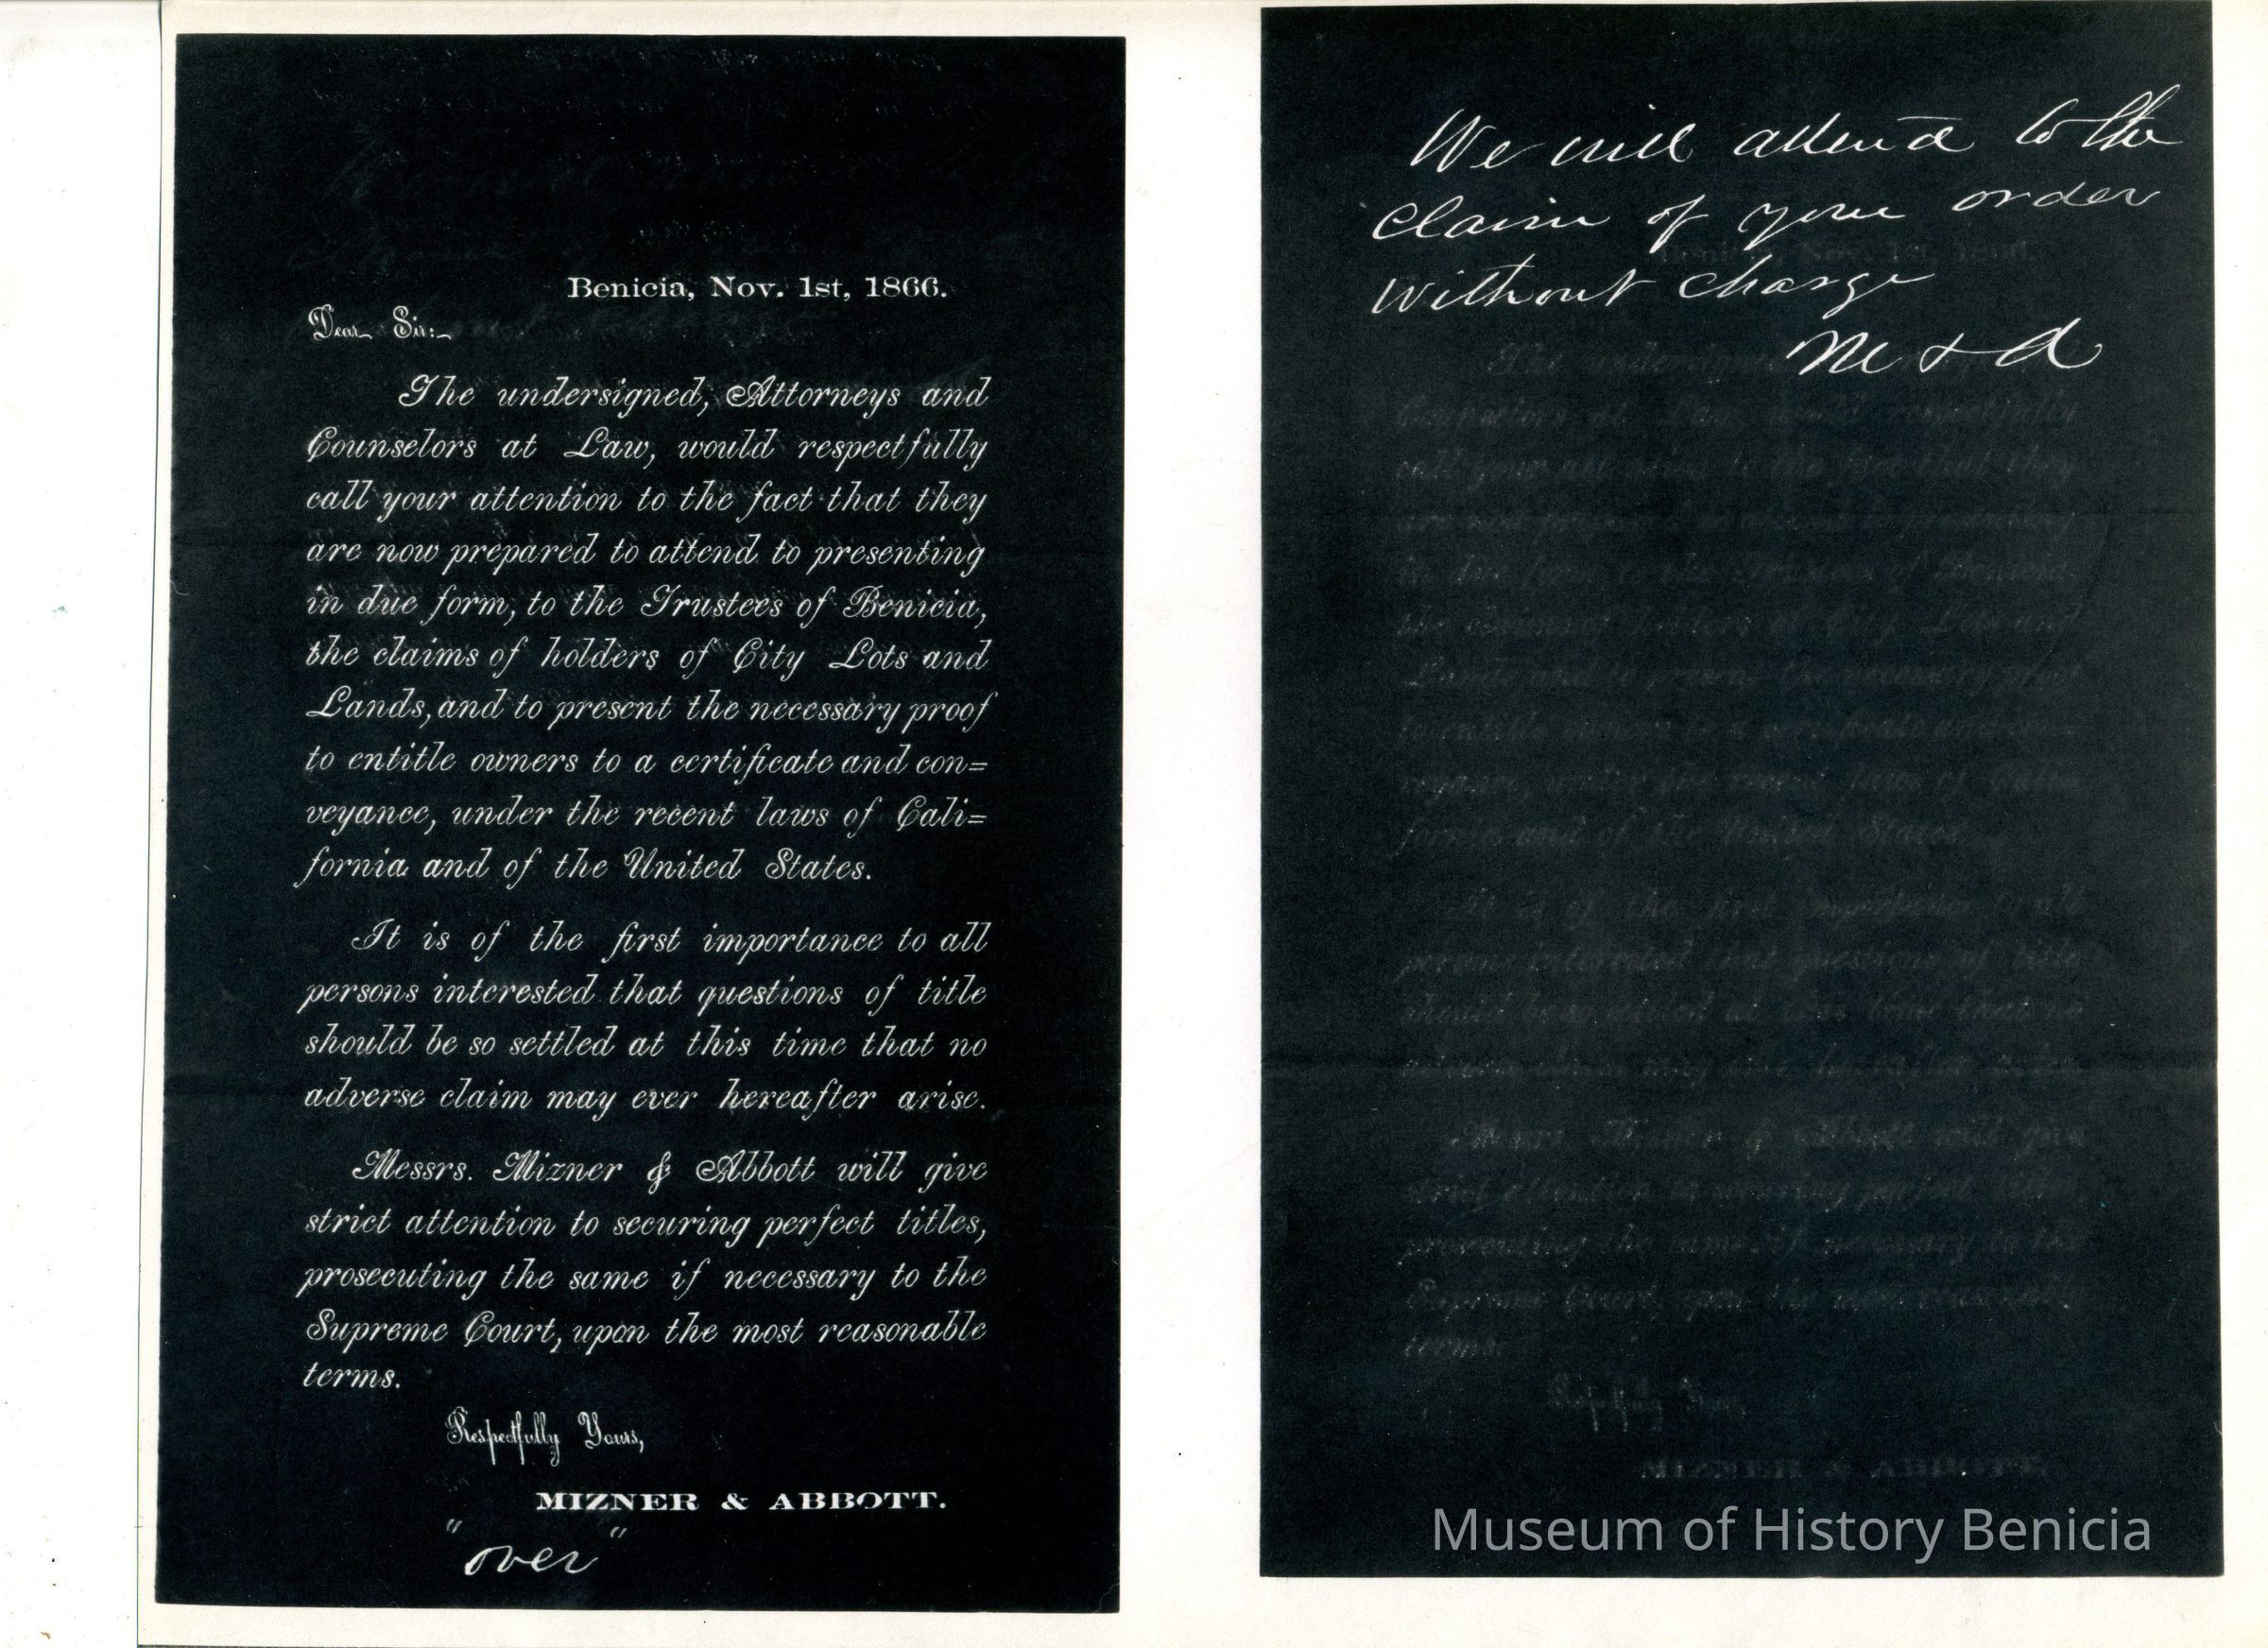 Benicia, Nov. 1st, 1866.
Dear Sir:
The undersigned, Attorneys and
Counselors at Law, would respectfully
call your attention to the fact that they
are now prepared to attend to presenting
in due form, to the Trustees of Benicia,
the claims of holders of City Lots and
Lands, and to present the necessary proof
to entitle owners to a certificate and con=
veyance, under the recent laws of Cali=
fornia and of the United States.
It is of the first importance to all
persons interested that questions of title
should be so settled at this time that no
adverse claim may ever hereafter arise.
Messrs. Mizner & Abbott will give
strict attention to securing perfect titles,
prosecuting the same if necessary to the
Supreme Court, upon the most reasonable
terms.
Respectfully Yours,
MIZNER & ABBOTT.
"over"
We will attend to the
claim of your order
without charge
M & A
Museum of History Benicia